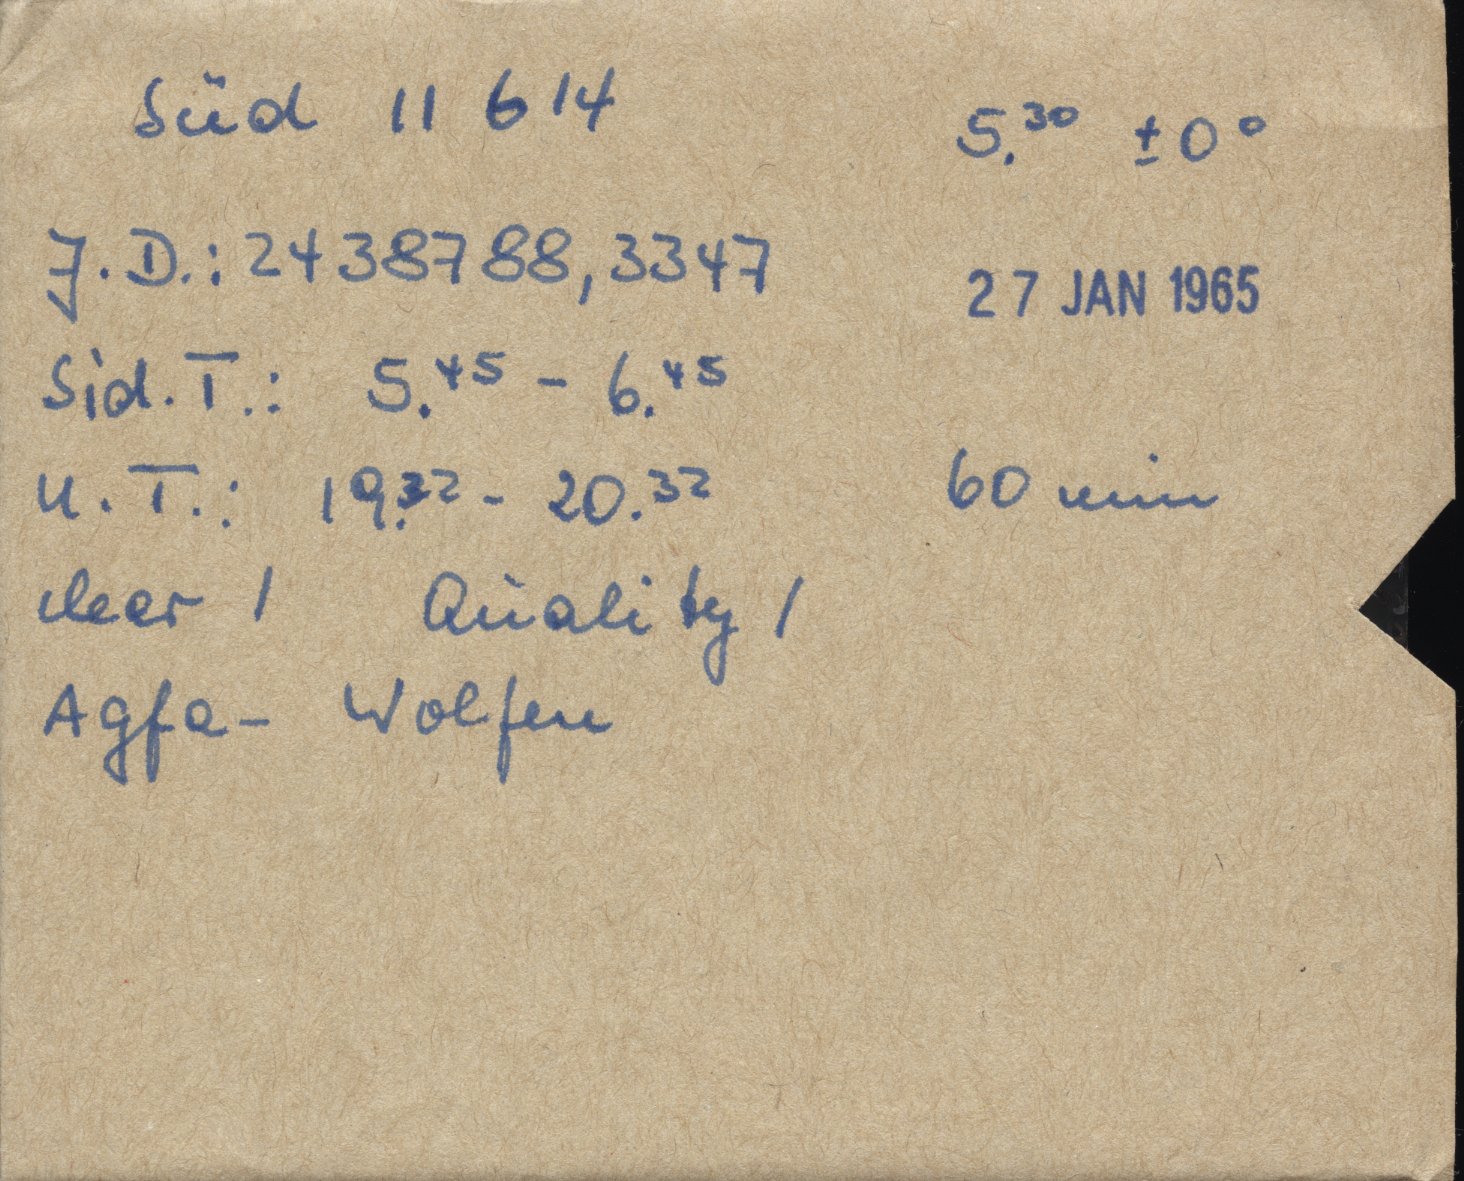 Süd 11 614 5.³⁰ ±0°
J.D.: 2438788,3347 27 JAN 1965
Sid.T.: 5.⁴⁵ - 6.⁴⁵
U.T.: 19.³² - 20.³² 60 min
clear 1 Quality 1
Agfa- Wolfen